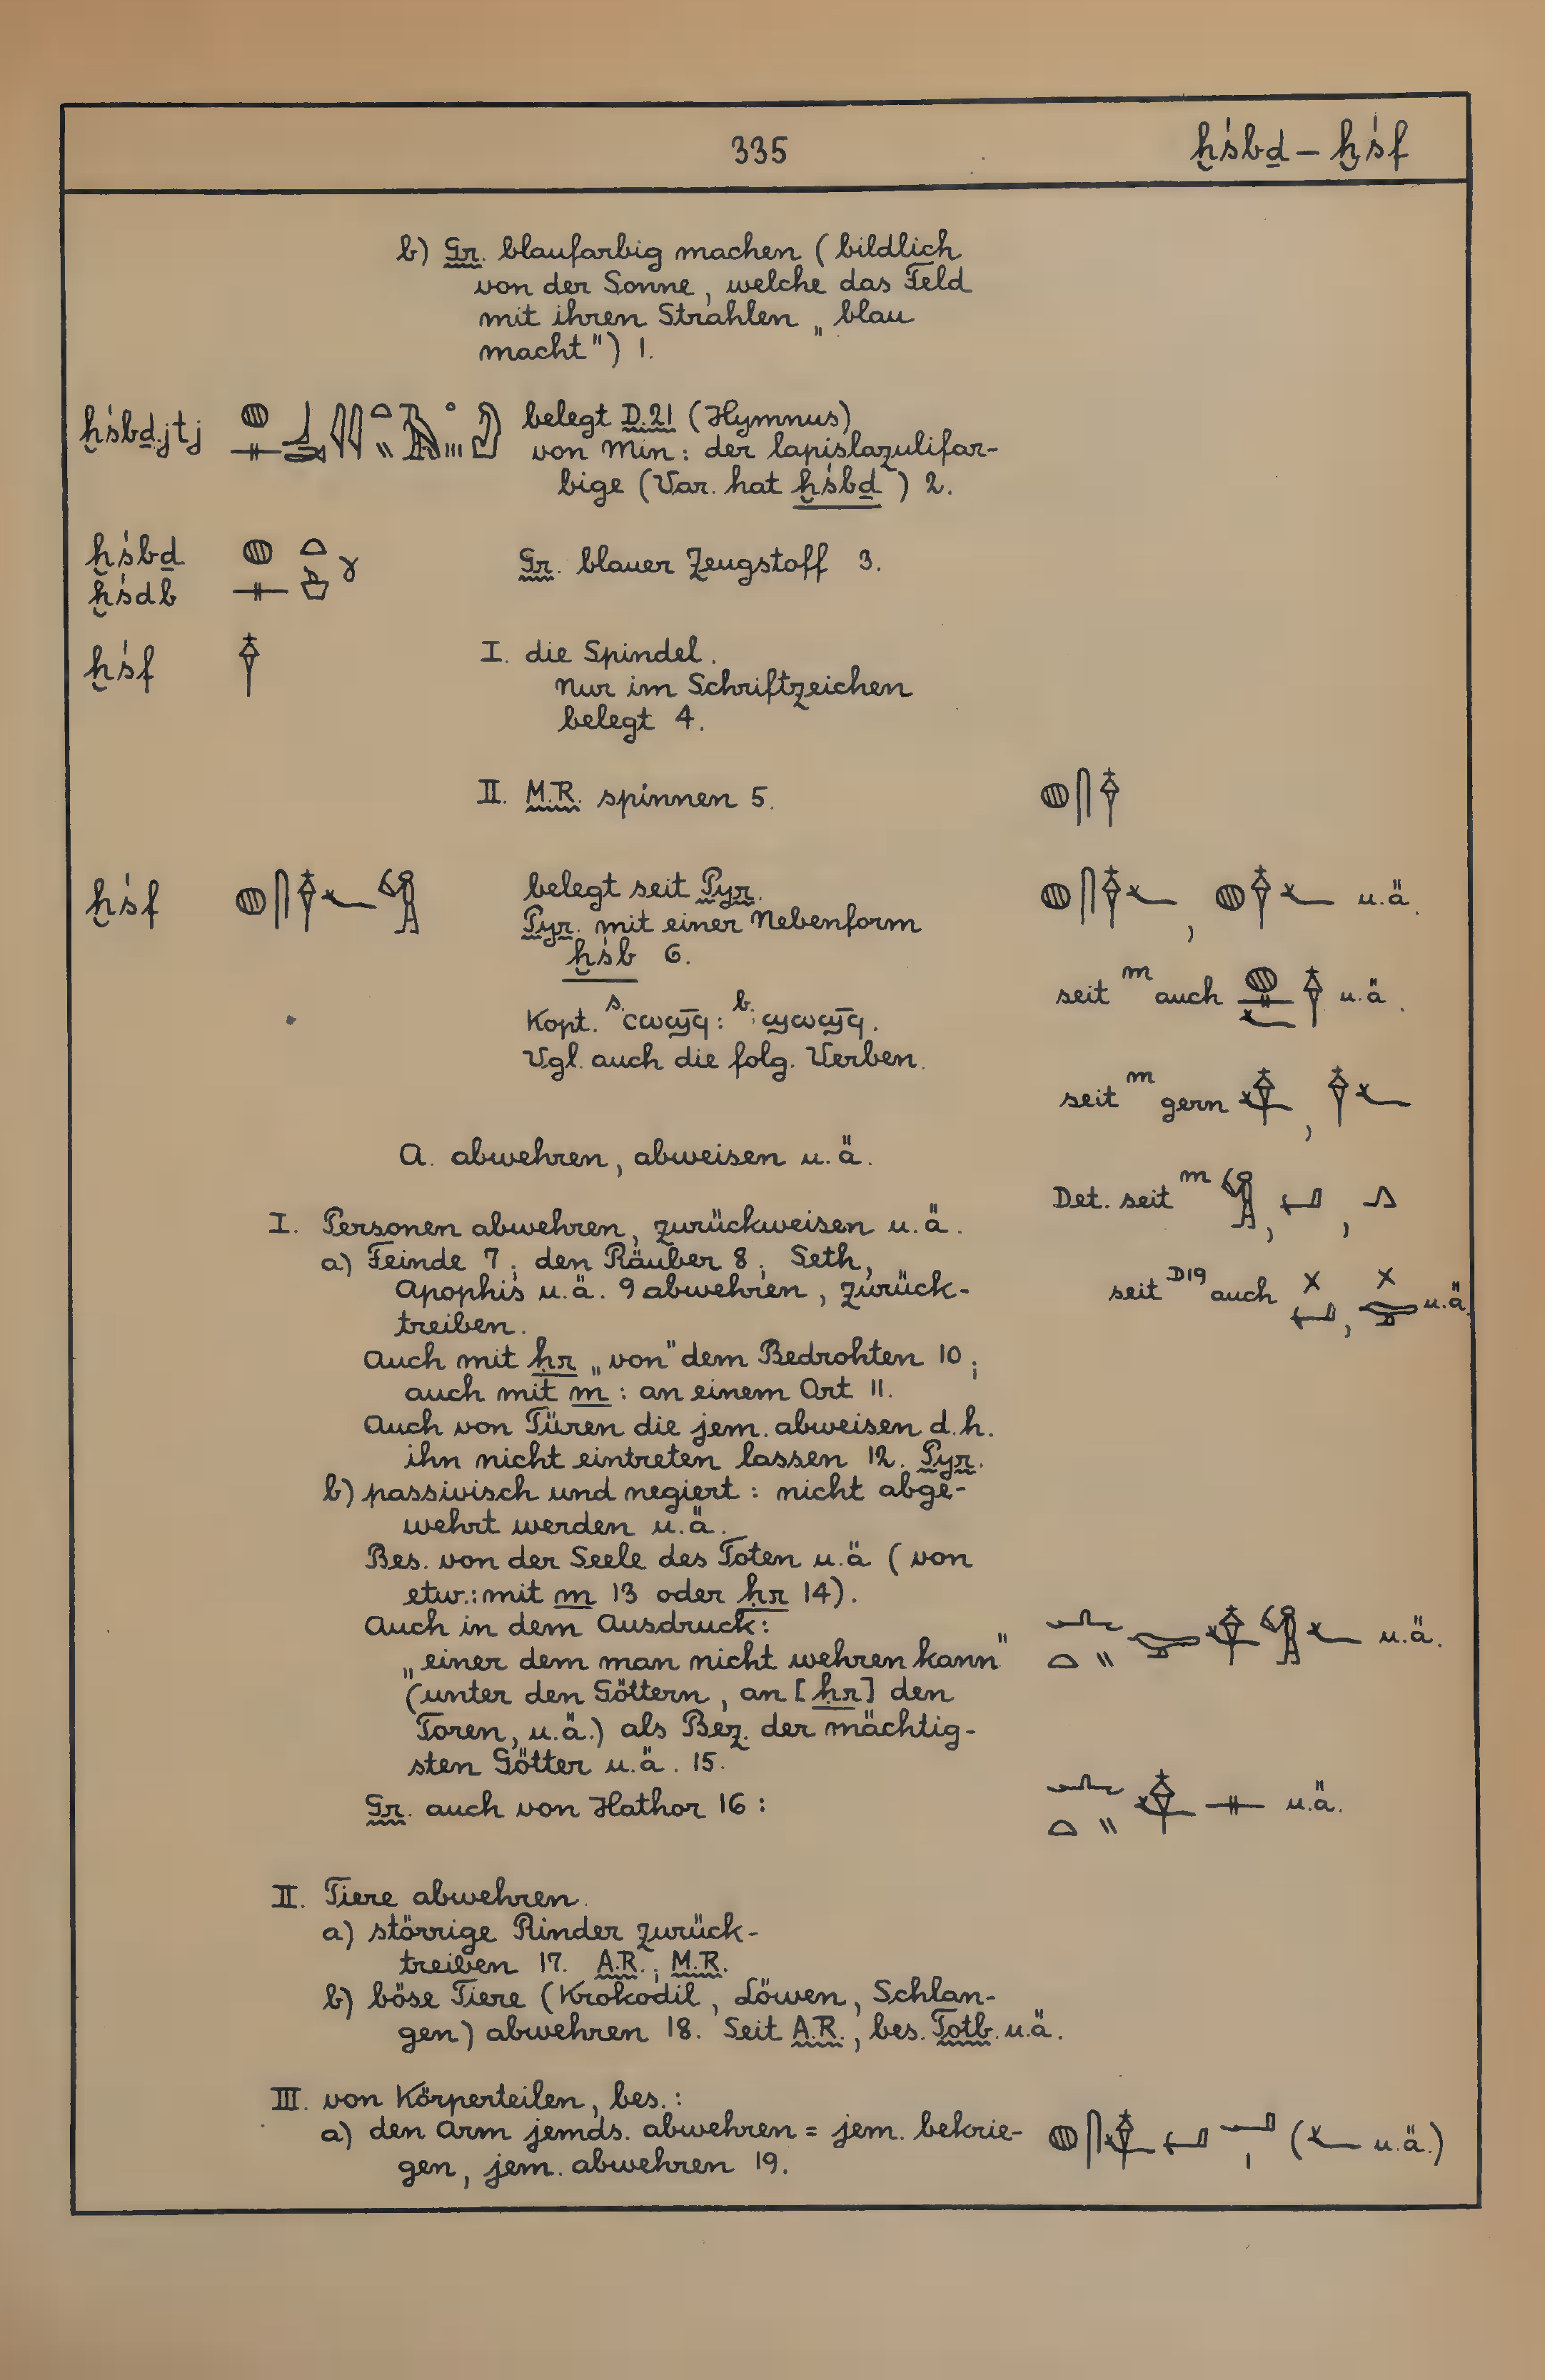 335
ḫśbḏ – ḫśf
b) Gr. blaufarbig machen (bildlich
von der Sonne, welche das Feld
mit ihren Strahlen „blau
macht") 1.
ḫśbḏ.jtj belegt D.21 (Hymnus)
von Min: der lapislazulifar-
bige (Var. hat ḫśbḏ) 2.
ḫśbḏ
ḫśdb
Gr. blauer Zeugstoff 3.
ḫśf I. die Spindel.
Nur im Schriftzeichen
belegt 4.
II. M.R. spinnen 5.
ḫśf belegt seit Pyr.
Pyr. mit einer Nebenform
ḫśb 6.
Kopt. s. ⲥⲱϣϥ̄: b. ϣⲱϣϥ̄.
Vgl. auch die folg. Verben.
, u.ä.
seit m auch u.ä.
seit m gern ,
A. abwehren, abweisen u.ä.
Det. seit m , ,
seit D19 auch , u.ä.
I. Personen abwehren, zurückweisen u.ä.
a) Feinde 7; den Räuber 8; Seth,
Apophis u.ä. 9 abwehren, zurück-
treiben.
Auch mit ḥr „von" dem Bedrohten 10;
auch mit m: an einem Ort 11.
Auch von Türen die jem. abweisen d.h.
ihn nicht eintreten lassen 12. Pyr.
b) passivisch und negiert: nicht abge-
wehrt werden u.ä.
Bes. von der Seele des Toten u.ä (von
etw.: mit m 13 oder ḥr 14).
Auch in dem Ausdruck:
„einer dem man nicht wehren kann" u.ä.
(unter den Göttern, an [ḥr] den
Toren, u.ä.) als Bez. der mächtig-
sten Götter u.ä. 15.
Gr. auch von Hathor 16: u.ä.
II. Tiere abwehren.
a) störrige Rinder zurück-
treiben 17. A.R.; M.R.
b) böse Tiere (Krokodil, Löwen, Schlan-
gen) abwehren 18. Seit A.R., bes. Totb. u.ä.
III. von Körperteilen, bes.:
a) den Arm jemds. abwehren = jem. bekrie-
gen, jem. abwehren 19.
( u.ä.)